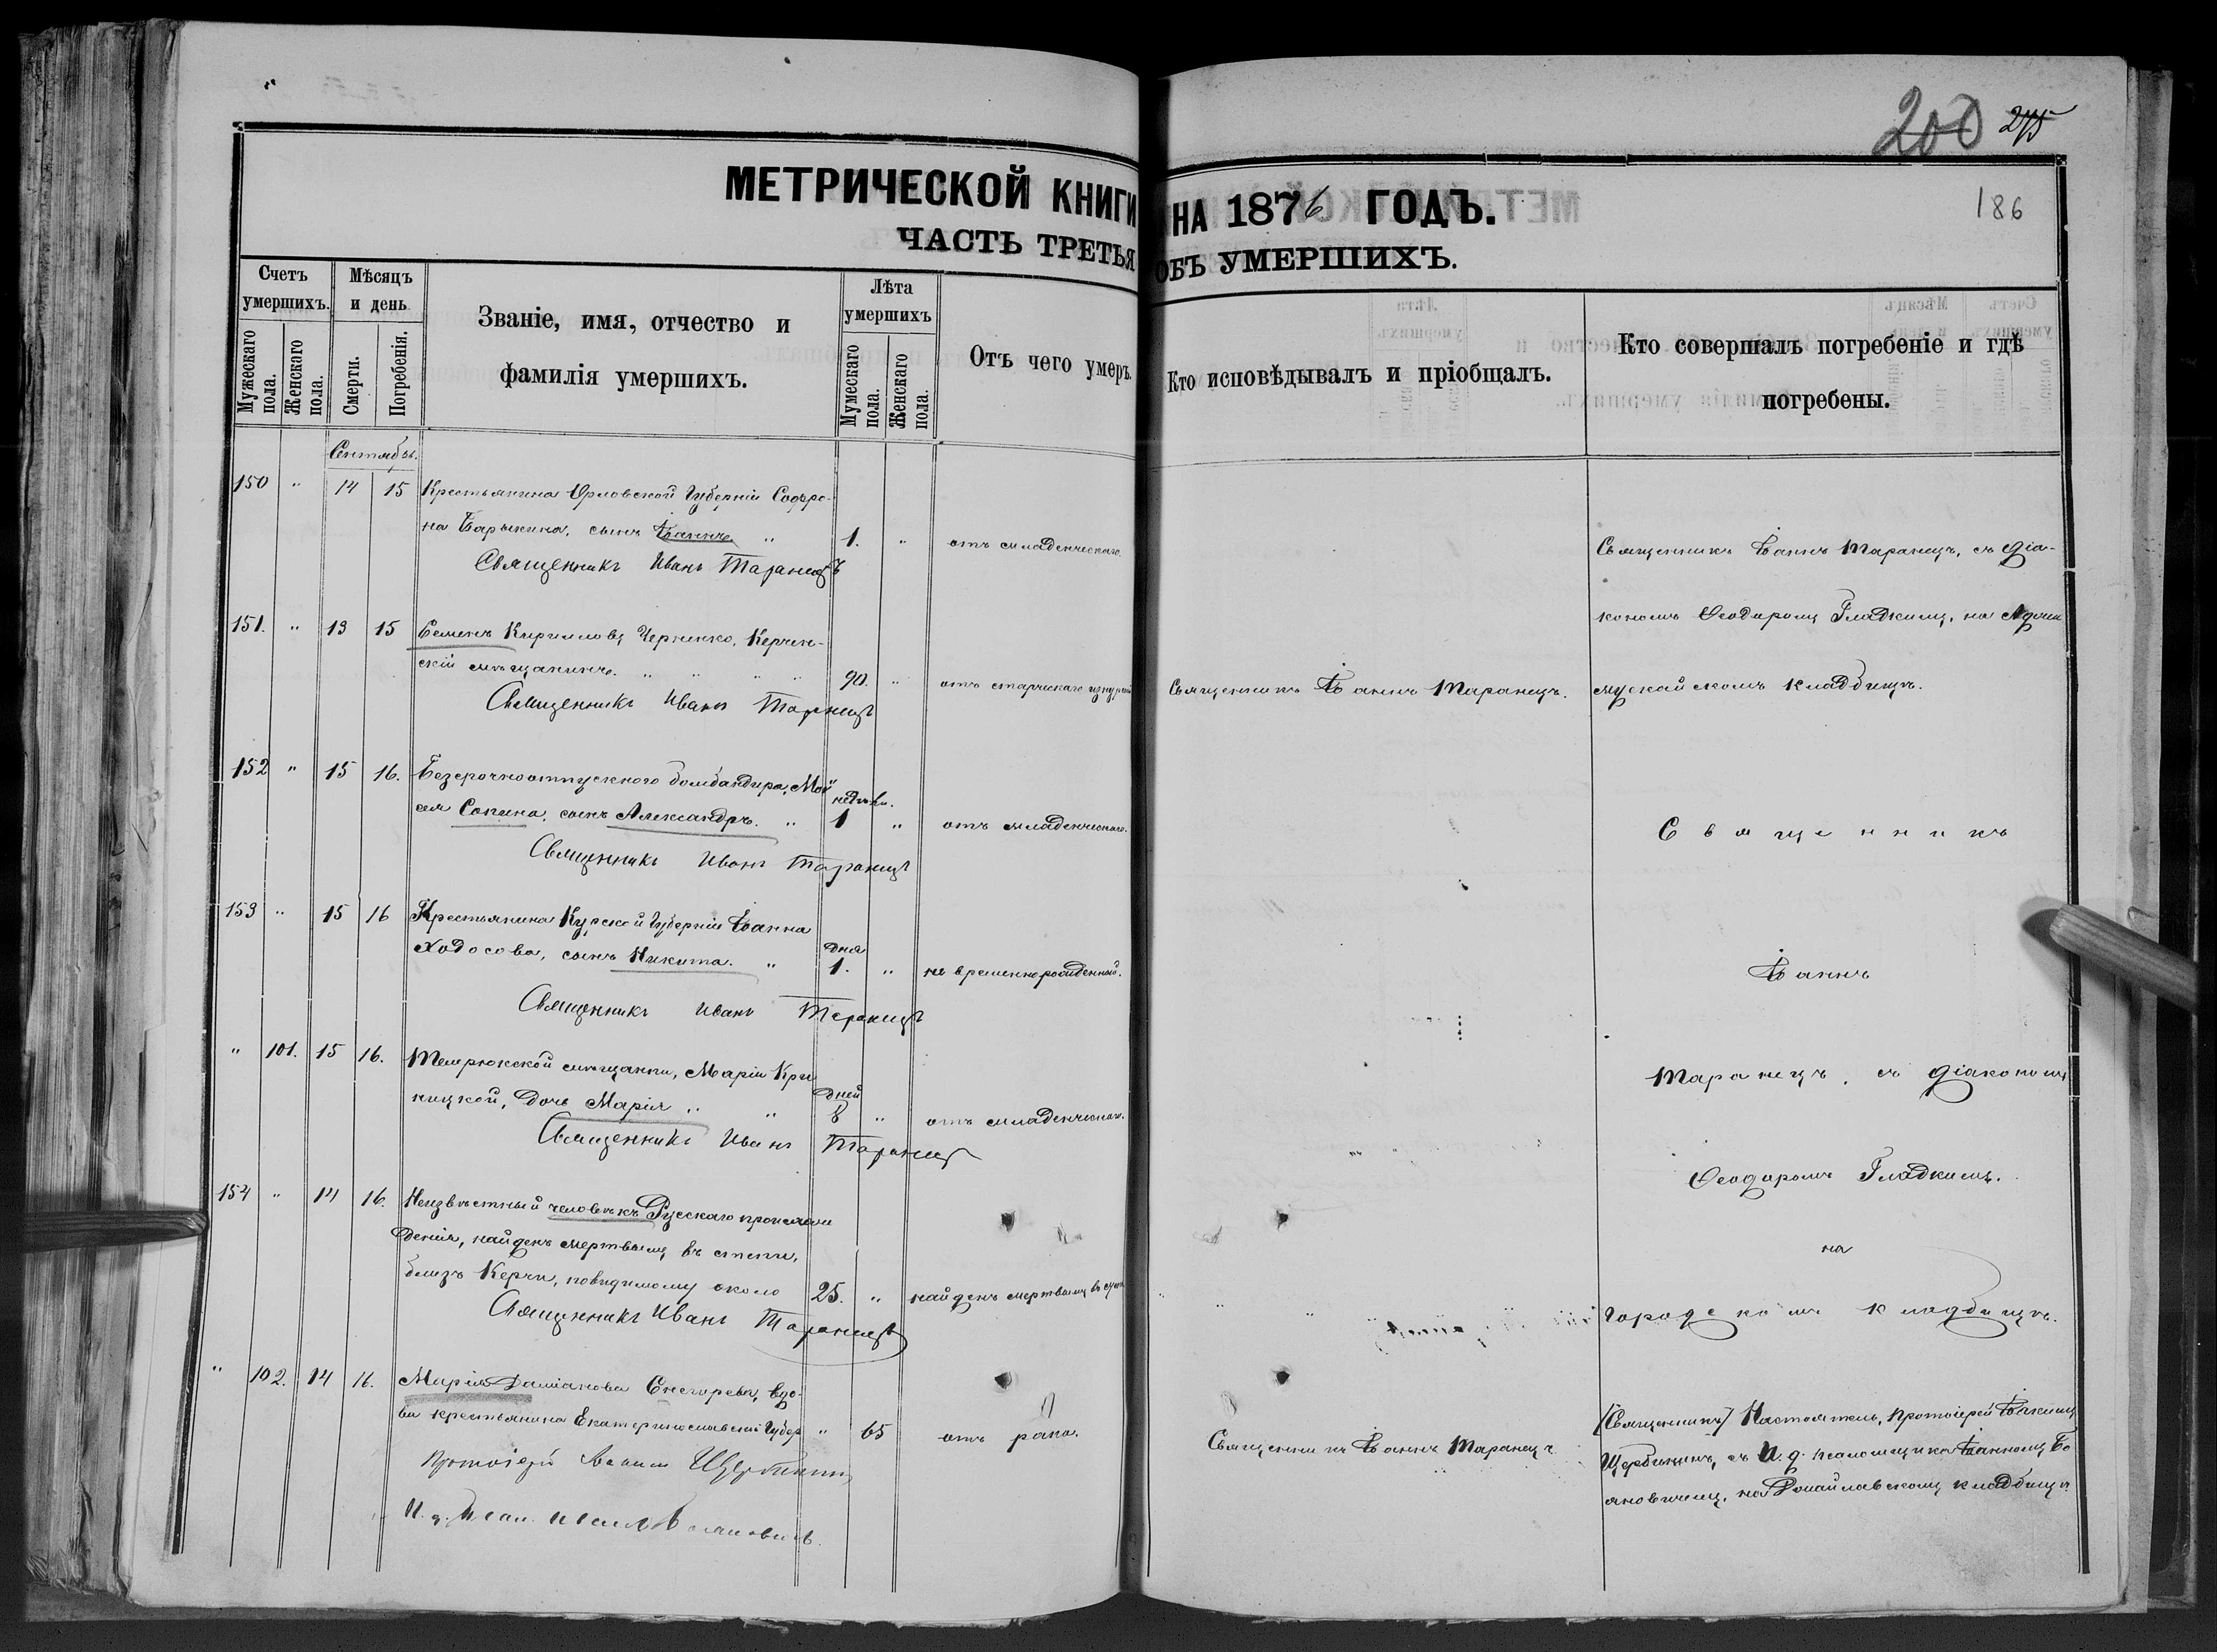 200 275
186
МЕТРИЧЕСКОЙ КНИГИ НА 1876 ГОДЪ.
ЧАСТЬ ТРЕТЬЯ ОБЪ УМЕРШИХЪ.
Счетъ умершихъ.
Мужескаго пола.
Женскаго пола.
Мѣсяцъ и день
Смерти.
Погребенія.
Званіе, имя, отчество и
фамилія умершихъ.
Лѣта умершихъ
Мужескаго пола.
Женскаго пола.
Отъ чего умеръ.
Кто исповѣдывалъ и пріобщалъ.
Кто совершалъ погребеніе и гдѣ
погребены.
Сентябрь.
150 " 14 15 Крестьянина Орловской Губерніи Софро-
на Барыкина, сынъ Іоаннъ " 1. " отъ младенческаго.
Священникъ Иванъ Таранецъ
Священникъ Іоаннъ Таранецъ, съ діа-
кономъ Ѳеодоромъ Гладкимъ, на
151. " 13 15 Семенъ Кирилловъ Черненко, Керчен-
скій мѣщанинъ. " " " " 90. " отъ старческаго
Священникъ Іоаннъ Таранецъ.
кладбищѣ.
Священникъ Иванъ Таранецъ
152 " 15 16. Безсрочноотпускного бомбандира, Мои
сея Сопина, сынъ Александръ. " недѣли. 1 " отъ младенческаго.
Священникъ Иванъ Таранецъ
Священникъ
153 " 15 16 Крестьянина Курской Губерніи Іоанна
Ходосова, сынъ Никита. " дня 1. " не временнорожденный.
Священникъ Иванъ Таранецъ
Іоаннъ
" 101. 15 16. Темрюкской мѣщанки, Маріи Кри
ницкой, дочь Марія " " Дней 8 " отъ младенческаго.
Священникъ Иванъ Таранецъ
Таранецъ, съ діакономъ
Ѳеодоромъ Гладкимъ.
154 " 14 16. Неизвѣстный человѣкъ Русскаго происхож
денія, найденъ мертвымъ въ степи,
близъ Керчи, повидимому около 25. " найденъ мертвымъ въ степи
Священникъ Иванъ Таранецъ
на
Городскомъ кладбищѣ.
" 102. 14 16. Марія Даміанова Снегорева, вдо-
ва крестьянина Екатеринославской Губер " 65 отъ рака.
Священникъ Іоаннъ Таранецъ
(Священникъ) Настоятель, протоіерей Іоакимъ
Щербининъ, съ И. д. псаломщика Іоанномъ Бо
яновичемъ, на кладбищѣ
Протоіерей Іоакимъ Щербининъ
И. д. Псал.